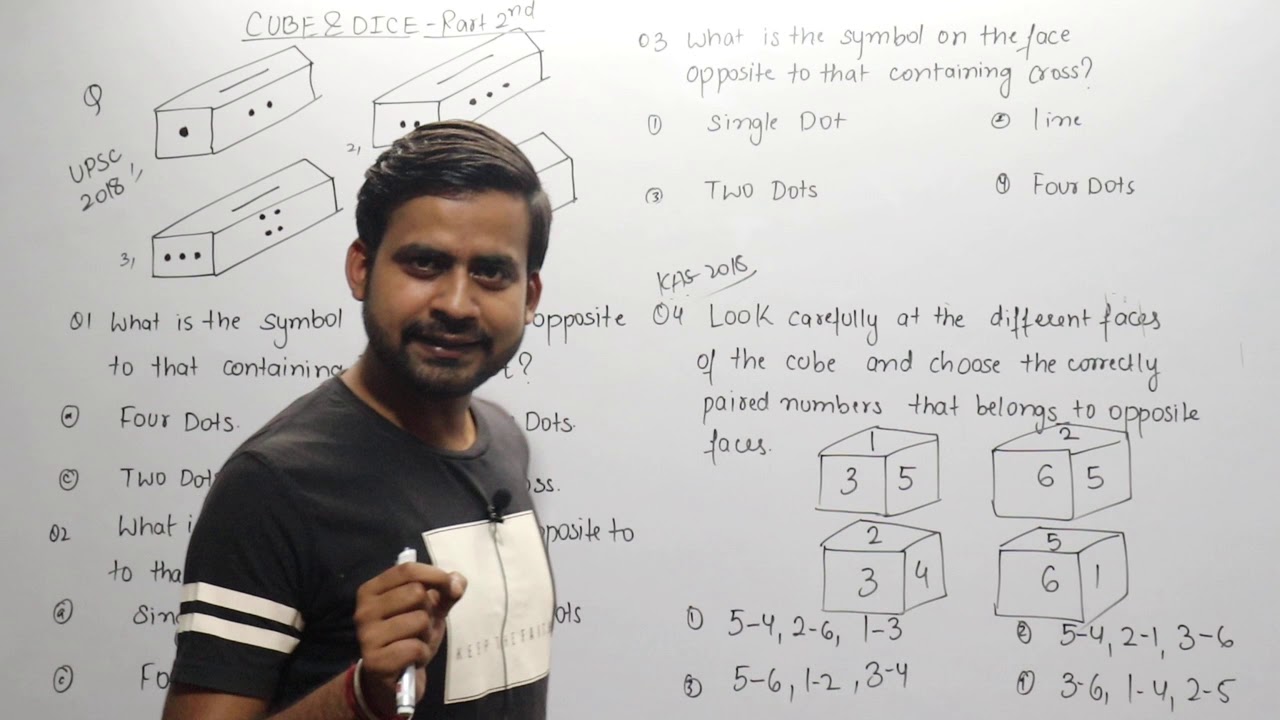 CUBE & DICE - Part 2nd
Q
UPSC
2018
1,
2,
3,
Q1 What is the symbol opposite
to that containing ?
(a) Four Dots. Dots.
(c) Two
Q2 What
to
(a)
(c)
Q3 What is the symbol on the face
opposite to that containing cross?
(1) Single Dot (2) line
(3) Two Dots (4) Four Dots
KAS-2018
Q4 Look carefully at the different faces
of the cube and choose the correctly
paired numbers that belongs to opposite
faces.
1 3 5
2 6 5
2 3 4
5 6 1
(1) 5-4, 2-6, 1-3 (2) 5-4, 2-1, 3-6
(3) 5-6, 1-2, 3-4 (4) 3-6, 1-4, 2-5
KEEP THE FAITH